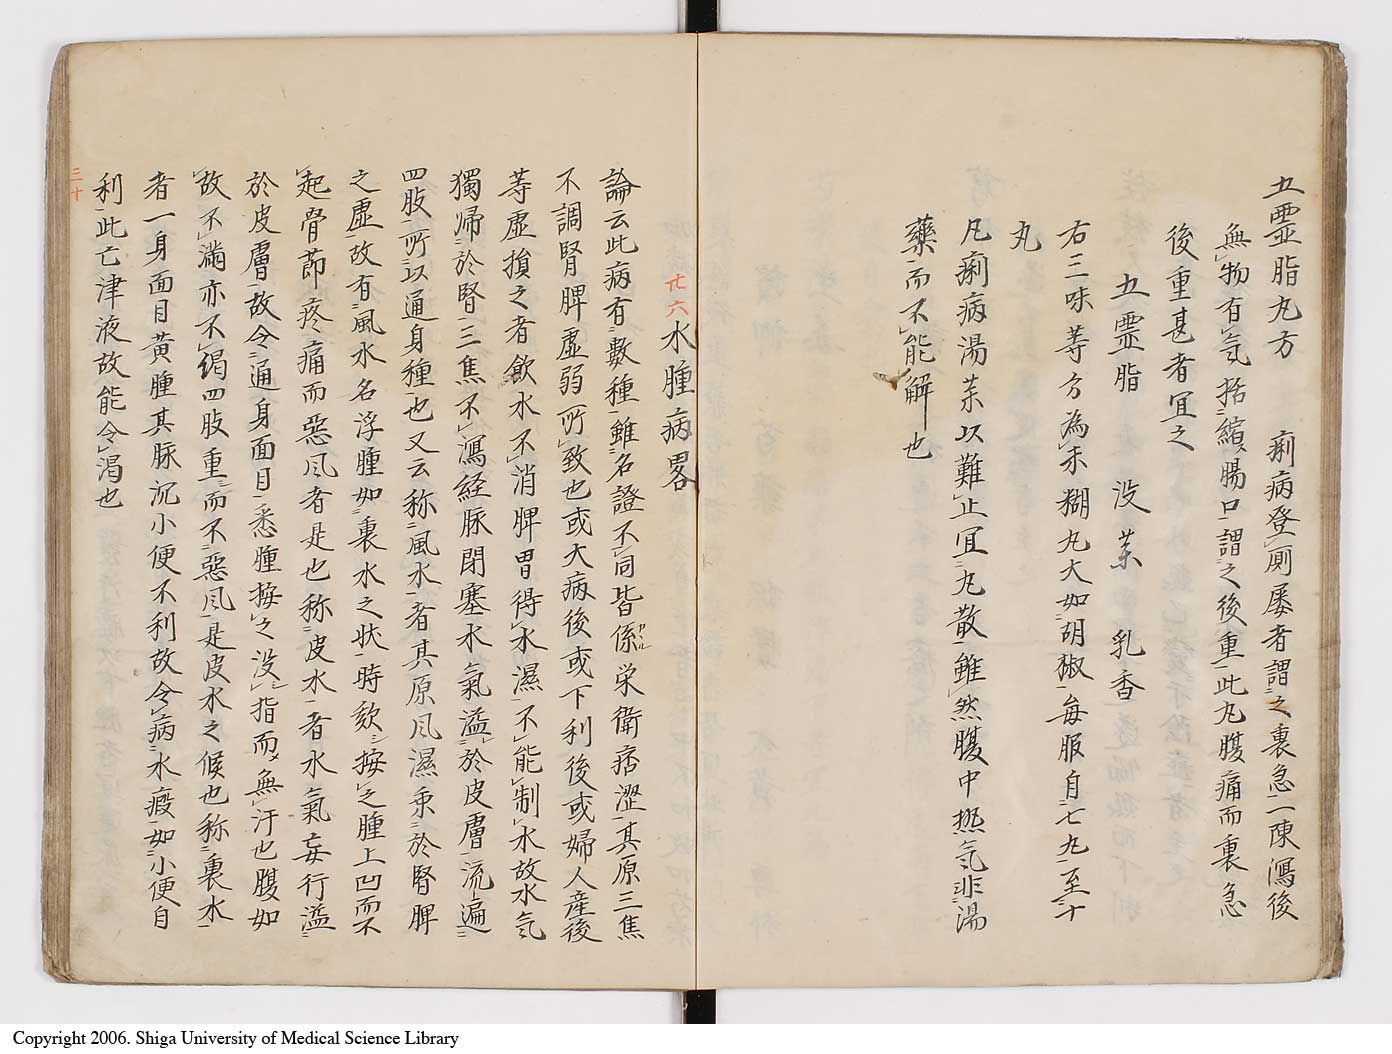 五靈脂丸方　痢病登厠屡者謂之裏急一陳瀉後
無物有気括縮腸口謂之後重此丸腹痛而裏急
後重甚者宜之
五霊脂　没茱　乳香
右三味等方為末糊丸大如胡椒毎服自七丸至十
丸
凡痢病湯茱以難止宜丸散雖然腹中熱気非湯
藥而不能解也
廿六
水腫病畧
論云此病有數種雖名證不同皆係栄衛痞澀其原三焦
不調腎脾虚弱所致也或大病後或下利後或婦人産後
等虚損之者飲水不消脾胃得水濕不能制水故水気
獨帰於腎三焦不瀉経脉閉塞水氣溢於皮膚流遍
四肢所以通身種也又云称風水者其原風濕乗於腎脾
之虚故有風水名浮腫如裏水之状時欬按之腫上凹而不
起骨莭疼痛而惡風者是也称皮水者水氣妄行溢
於皮膚故令通身面目悉腫按之没指而無汗也腹如
故不滿亦不渇四肢重而不惡風是皮水之候也称裏水
者一身面目黄腫其脉沉小便不利故令病水瘕如小便自
利此亡津液故能令渇也
三十
Copyright 2006. Shiga University of Medical Science Library